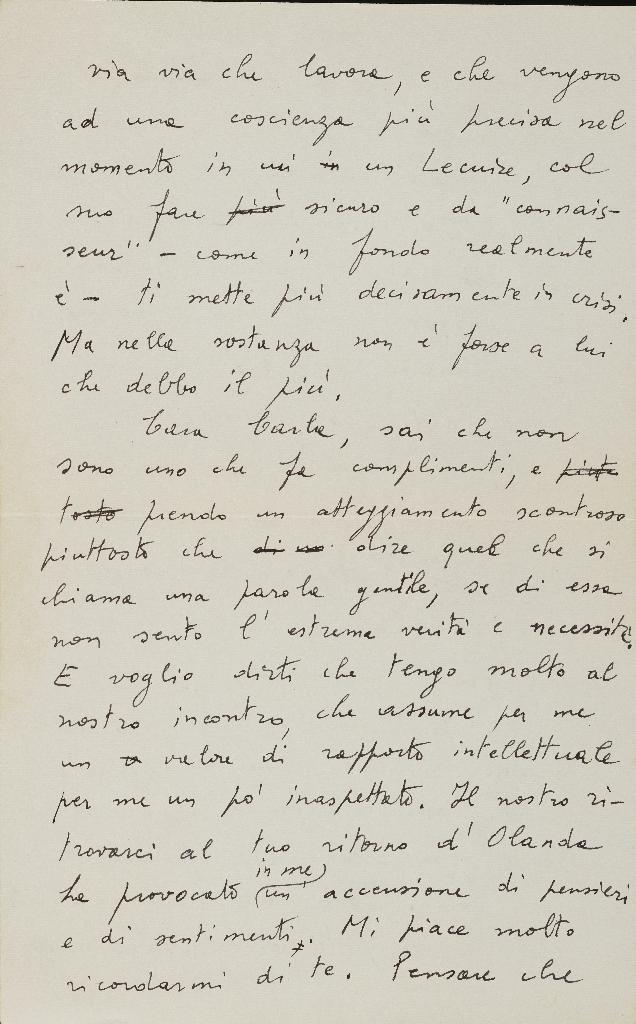 via via che lavora, e che vengono
ad una coscienza più precisa nel
momento in cui in un Lecuire, col
suo fare più sicuro e da "connais-
seur" - come in fondo realmente
è - ti mette più decisamente in crisi.
Ma nella sostanza non è forse a lui
che debbo il più.
Cara Carla, sai che non
sono uno che fa complimenti, e piut
tosto prendo un atteggiamento scontroso
piuttosto che di dire quel che si
chiama una parola gentile, se di essa
non sento l'estrema verità e necessità.
E voglio dirti che tengo molto al
nostro incontro, che assume per me
un valore di rapporto intellettuale
per me un po' inaspettato. Il nostro ri-
trovarci al tuo ritorno d'Olanda
ha provocato (in me) un'accensione di pensieri
e di sentimenti. Mi piace molto
ricordarmi di te. Pensare che